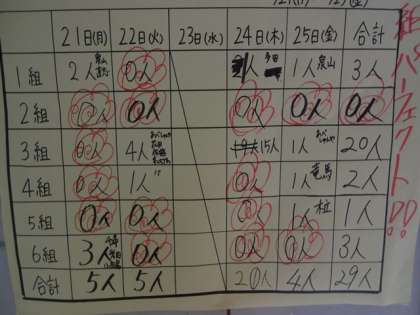 21日(月) 22日(火) 23日(水) 24日(木) 25日(金) 合計
1組 2人 0人 1人 3人
2組 0人 0人 0人 0人 0人
3組 0人 4人 15人 1人 20人
4組 0人 1人 0人 1人 竜馬 2人
5組 0人 0人 0人 1人 1人
6組 3人 0人 0人 0人 3人
合計 5人 5人 20人 4人 29人
組パーフェクト!!